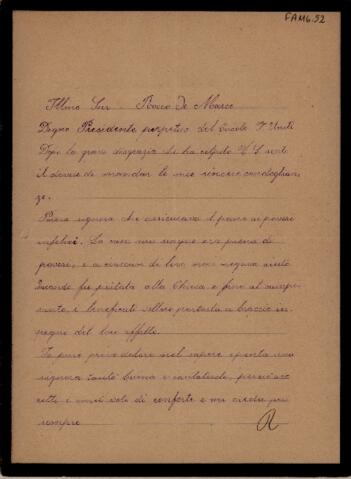 FAM6.52
Illmo Sir - Rocco De Marco
Degno Presidente perpetuo del Circolo F. Uniti
Dopo la grave disgrazia che ha colpito V. S. sento
il dovere di mandar le mie sincere condoglian
ze.
Povera signora che assicurava il pane ai poveri
infelici. La casa sua sempre era piena di
poveri, e a ciascun di loro non negava aiuto
Quando fu portata alla Chiesa e fino al campo
santo, i beneficati vollero portarla a braccio in
segno del loro affetto.
Io pure provo dolore nel sapere spenta una
signora tanto buona e caritatevole, perciò ac
cetti i miei voti di conforto e mi creda per
sempre